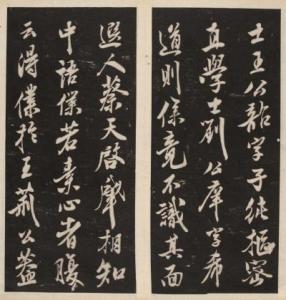 士王公韶字子純樞密
直學士劉公庠字希
道則僕竟不識其面
人蔡天啓相知
中語僕若素心者
云得僕於王荊公蓋